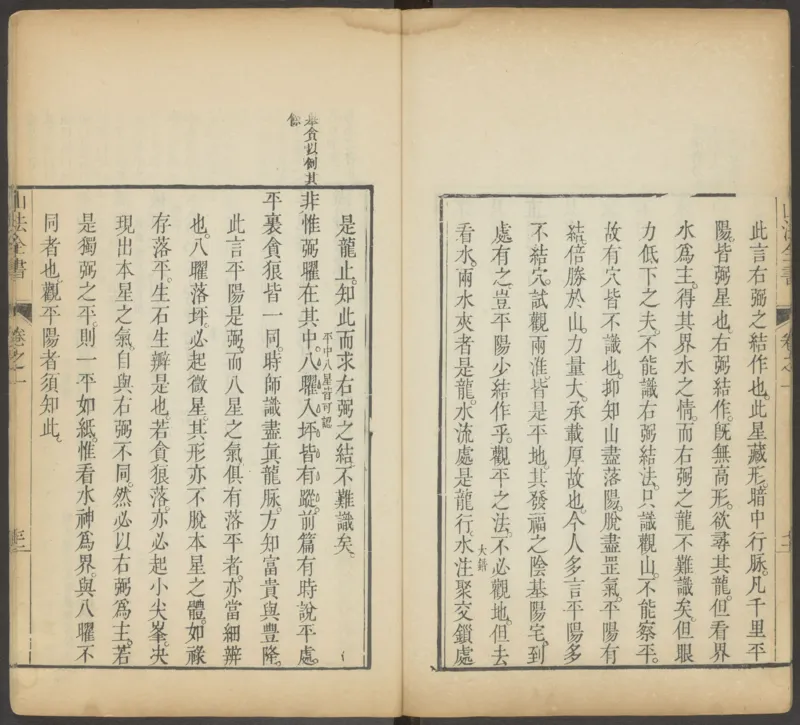 此言右弼之結作也此星藏形暗中行脉凡千里平
陽皆弼星也右弼結作旣無高形欲尋其龍但看界
水爲主得其界水之情而右弼之龍不難識矣但眼
力低下之夫不能識右弼結法只識觀山不能察平
故有穴皆不識也抑知山盡落陽脫盡罡氣平陽有
結倍勝於山力量大承載厚故也今人多言平陽多
不結穴試觀兩淮皆是平地其發福之陰基陽宅到
處有之豈平陽少結作乎觀平之法不必觀地但去
看水兩水夾者是龍水流處是龍行水注聚交鎖處
大錯
山法全書
卷之一
是龍止知此而求右弼之結不難識矣
平中八星皆可認
非惟弼曜在其中八曜入坪皆有蹤前篇有時說平處
舉貪以例其
餘
平裏貪狼皆一同時師識盡眞龍脉方知富貴與豐隆
此言平陽是弼而八星之氣俱有落平者亦當細辨
也八曜落坪必起微星其形亦不脫本星之體如祿
存落平生石生瓣是也若貪狼落亦必起小尖峯決
現出本星之氣自與右弼不同然必以右弼爲主若
是獨弼之平則一平如紙惟看水神爲界與八曜不
同者也觀平陽者須知此
山法全書
卷之一